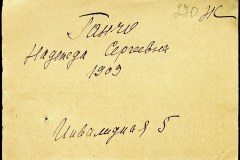 270 Ж
Ганче
Надежда Сергеевна
1909
Инвалидная 5